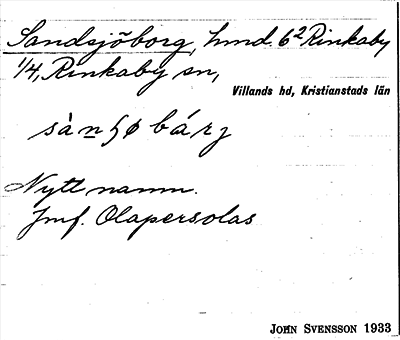 Sandsjöborg, hmd. 6² Rinkaby
1/4, Rinkaby sn,
Villands hd, Kristianstads län
Nytt namn.
Jmf. Olapersolas
JOHN SVENSSON 1933